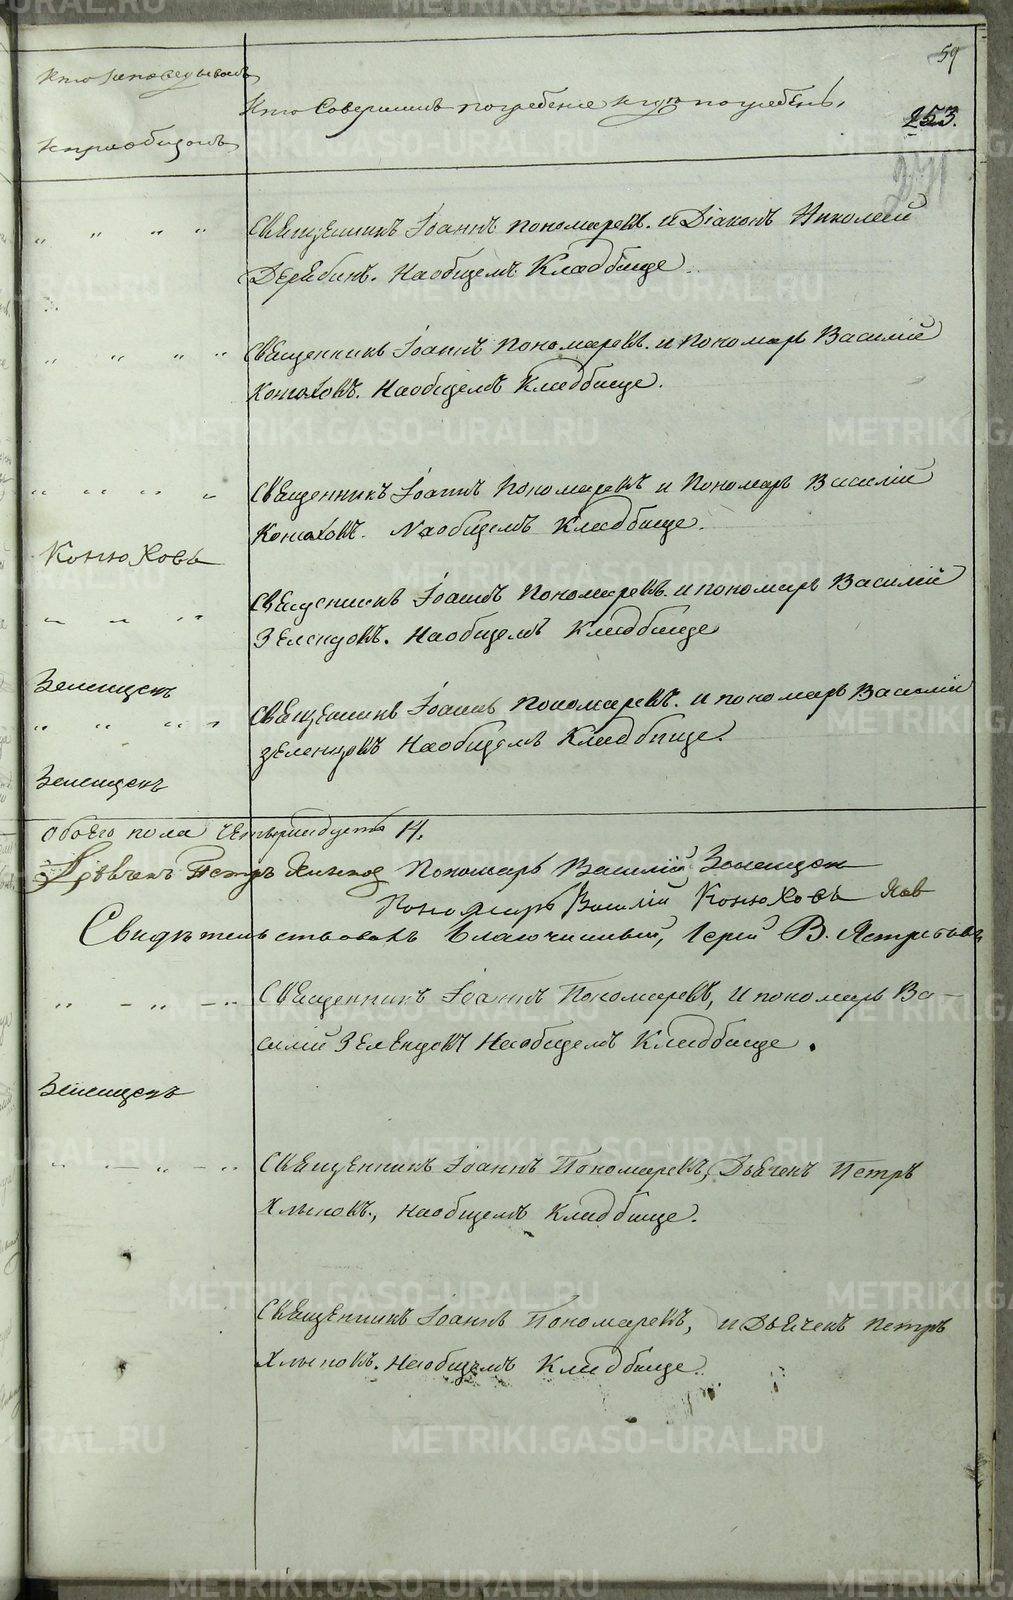 59
Кто исповедывалъ
и пріобщалъ
Кто Совершилъ погребеніе и гдѣ погребенъ.
253.
271
Священникъ Іоаннъ Пономаревъ. и Діаконъ Николай
Дерябинъ. На общемъ Кладбище
Священникъ Іоаннъ Пономаревъ. и Пономарь Василій
Конюховъ. На общемъ Кладбище.
Священникъ Іоаннъ Пономаревъ и Пономарь Василій
Конюховъ. На общемъ Кладбище.
Конюховъ
Священникъ Іоаннъ Пономаревъ. и пономарь Василій
Зеленцовъ. На общемъ Кладбище
Зеленцовъ
Священникъ Іоаннъ Пономаревъ. и пономарь Василій
Зеленцовъ На общемъ Кладбище.
Зеленцовъ
обоего пола
Дьячекъ Петръ Хлыновъ Пономарь Василій Зеленцовъ
Пономарь Василій Конюховъ
Свидѣтельствовалъ Благочинный, Іерей В. Ястребовъ
Священникъ Іоаннъ Пономаревъ, и пономарь Ва-
силій Зеленцовъ На общемъ Кладбище.
Зеленцовъ
Священникъ Іоаннъ Пономаревъ, Дьячекъ Петръ
Хлыновъ, на общемъ Кладбище.
Священникъ Іоаннъ Пономаревъ, и Дьячекъ Петръ
Хлыновъ. На общемъ Кладбище.
METRIKI.GASO-URAL.RU